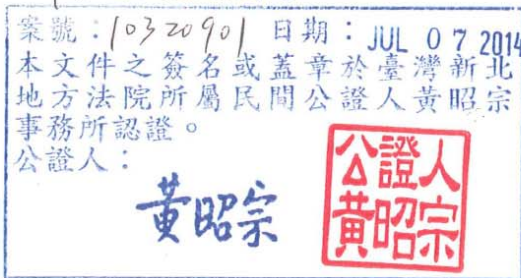 案號：10320901 日期：JUL 07 2014
本文件之簽名或蓋章於臺灣新北
地方法院所屬民間公證人黃昭宗
事務所認證。
公證人：
黃昭宗
公證人
黃昭宗